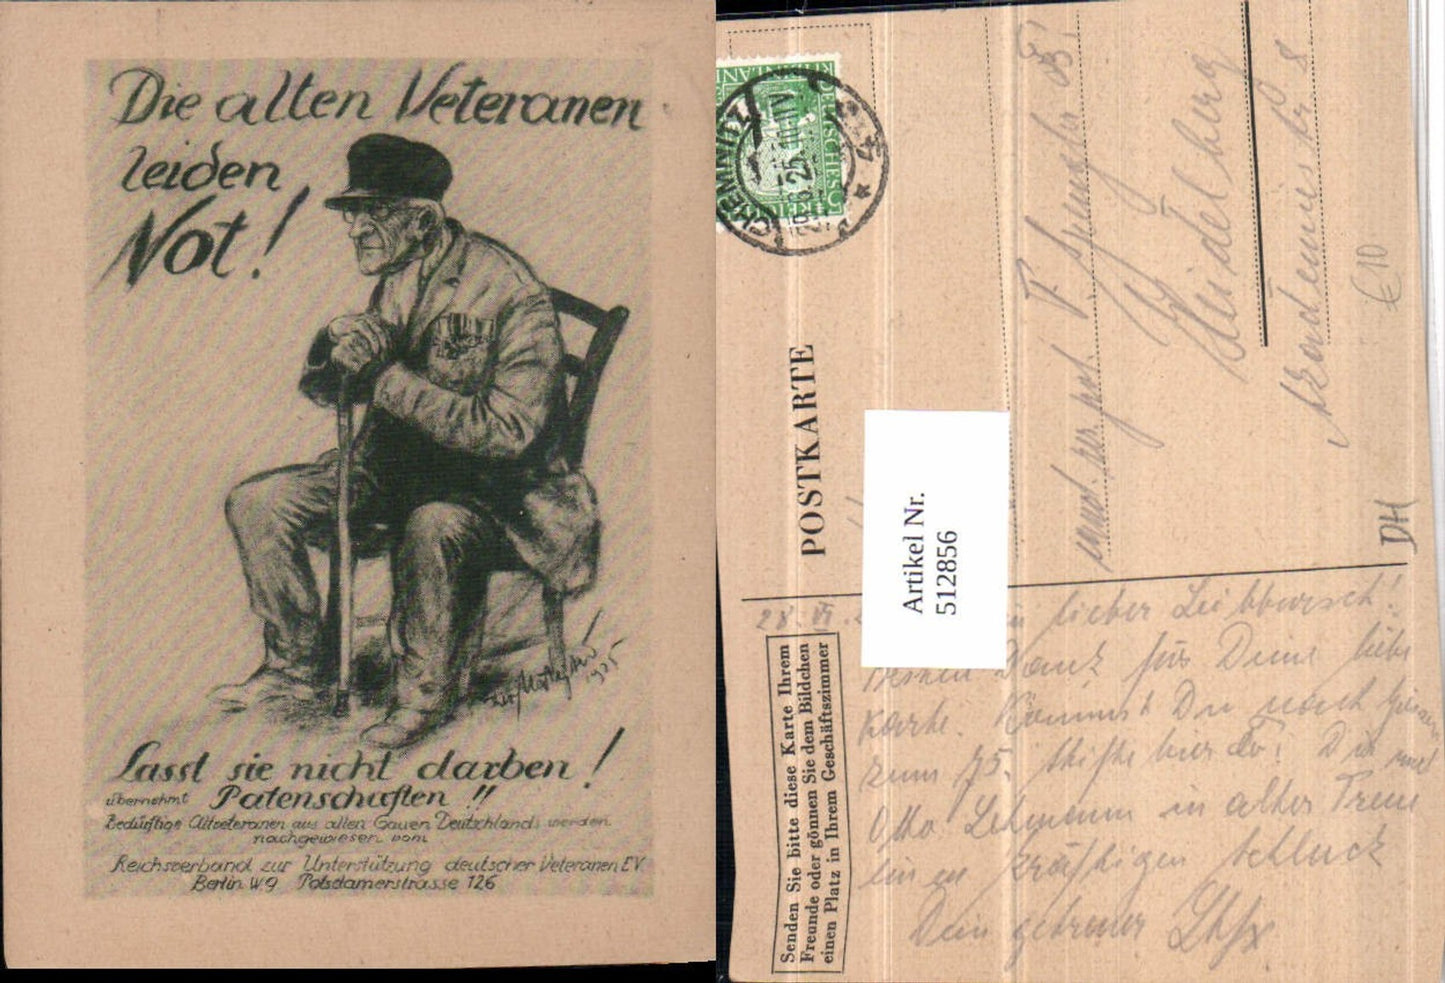 Die alten Veteranen
leiden
Not!
1925
Lasst sie nicht darben!
übernehmt Patenschaften!!
Bedürftige Altveteranen aus allen Gauen Deutschlands werden
nachgewiesen vom
Reichsverband zur Unterstützung deutscher Veteranen EV
Berlin W9 Potsdamerstrasse 126
DEUTSCHES REICH
RHEINLAND
5
CHEMNITZ
POSTKARTE
Heidelberg
8
€ 10
DH
Artikel Nr.
512856
Senden Sie bitte diese Karte Ihrem
Freunde oder gönnen Sie dem Bildchen
einen Platz in Ihrem Geschäftszimmer
28. VI.
lieber Leibbursch!
Dank für Deine liebe
Karte. Kommst Du nach
zum 75. Dir und
Otto Lehmann in alter Treue
einen kräftigen Schluck
Dein getreuer